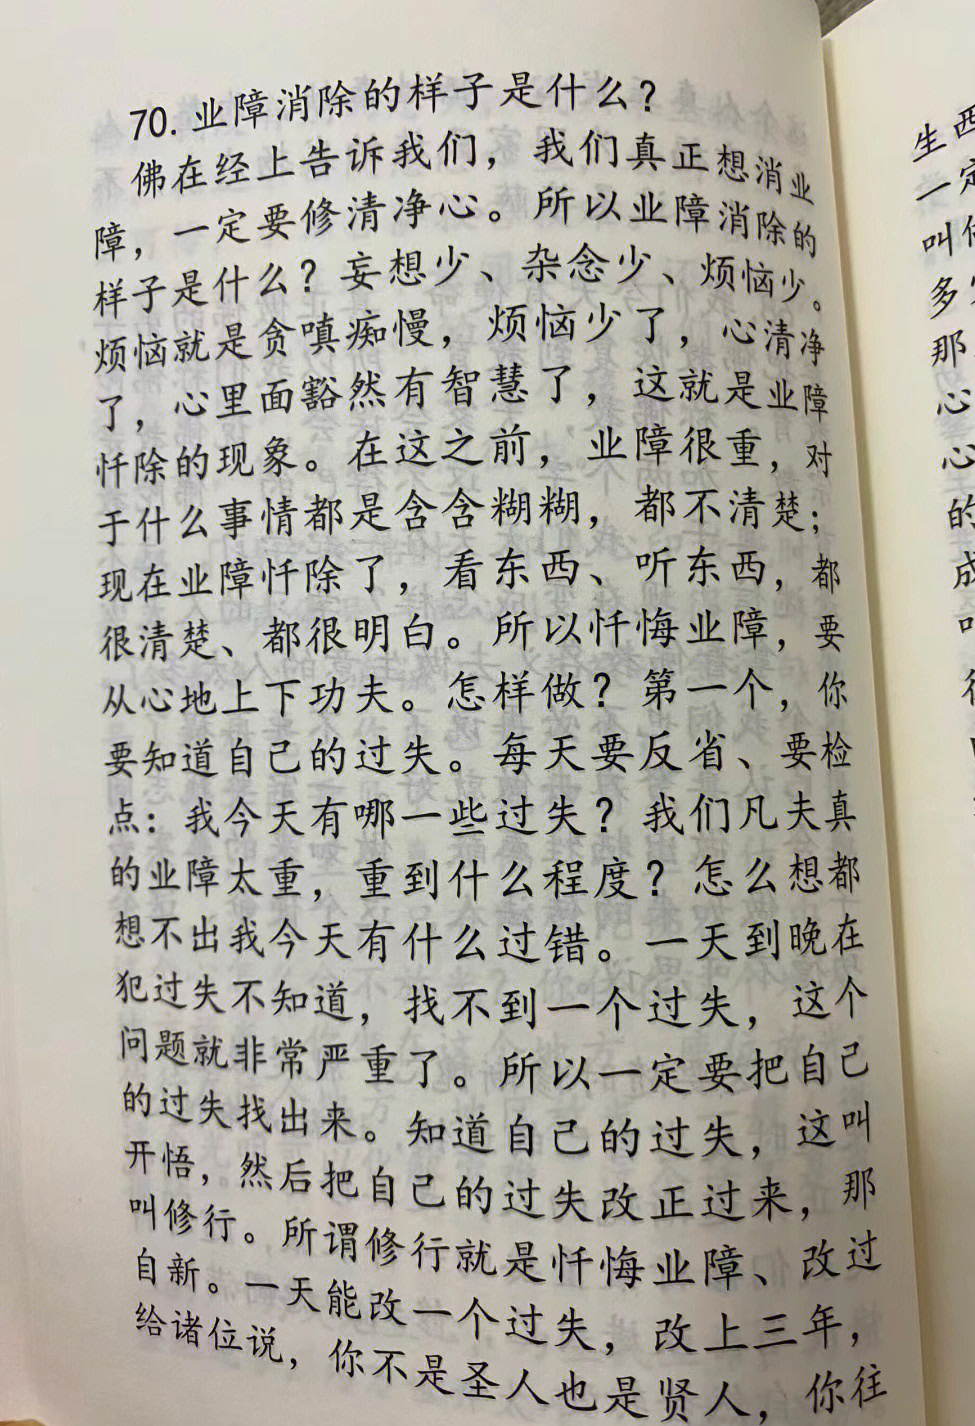 70. 业障消除的样子是什么？
佛在经上告诉我们，我们真正想消业
障，一定要修清净心。所以业障消除的
样子是什么？妄想少、杂念少、烦恼少。
烦恼就是贪嗔痴慢，烦恼少了，心清净
了，心里面豁然有智慧了，这就是业障
忏除的现象。在这之前，业障很重，对
于什么事情都是含含糊糊，都不清楚；
现在业障忏除了，看东西、听东西，都
很清楚、都很明白。所以忏悔业障，要
从心地上下功夫。怎样做？第一个，你
要知道自己的过失。每天要反省、要检
点：我今天有哪一些过失？我们凡夫真
的业障太重，重到什么程度？怎么想都
想不出我今天有什么过错。一天到晚在
犯过失不知道，找不到一个过失，这个
问题就非常严重了。所以一定要把自己
的过失找出来。知道自己的过失，这叫
开悟，然后把自己的过失改正过来，那
叫修行。所谓修行就是忏悔业障、改过
自新。一天能改一个过失，改上三年，
给诸位说，你不是圣人也是贤人，你往
生西
一定
叫你
多
那
心
心
的
成